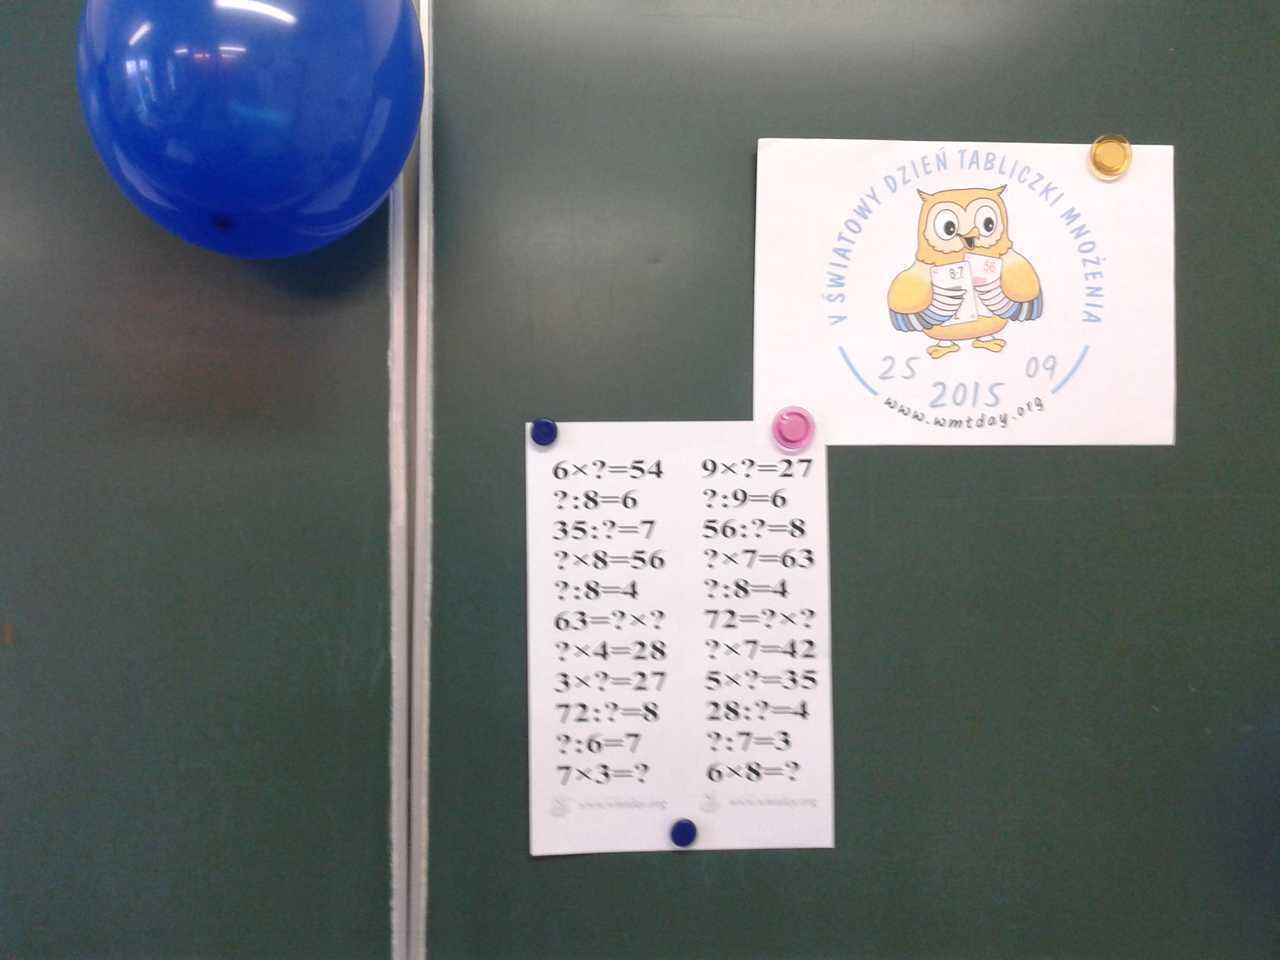 V ŚWIATOWY DZIEŃ TABLICZKI MNOŻENIA
8·7 56
25 09
2015
www.wmtday.org
6×?=54 9×?=27
?:8=6 ?:9=6
35:?=7 56:?=8
?×8=56 ?×7=63
?:8=4 ?:8=4
63=?×? 72=?×?
?×4=28 ?×7=42
3×?=27 5×?=35
72:?=8 28:?=4
?:6=7 ?:7=3
7×3=? 6×8=?
www.wmtday.org www.wmtday.org